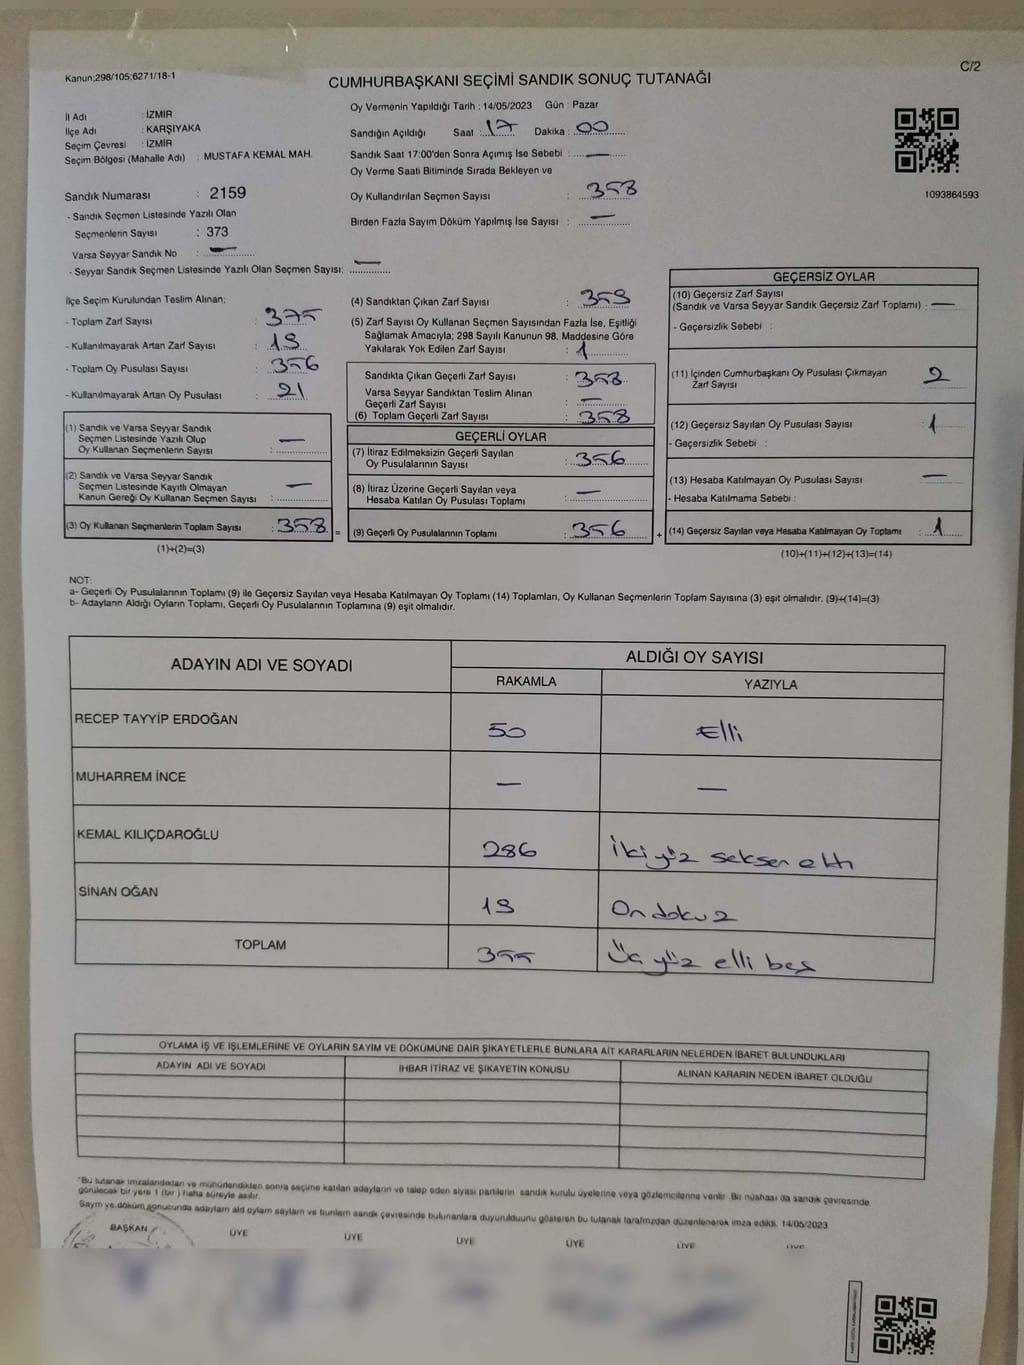 Kanun;298/105;6271/18-1
C/2
CUMHURBAŞKANI SEÇİMİ SANDIK SONUÇ TUTANAĞI
İl Adı : İZMİR
İlçe Adı : KARŞIYAKA
Seçim Çevresi : İZMİR
Seçim Bölgesi (Mahalle Adı) : MUSTAFA KEMAL MAH.
Sandık Numarası : 2159
- Sandık Seçmen Listesinde Yazılı Olan
Seçmenlerin Sayısı : 373
Varsa Seyyar Sandık No : —
- Seyyar Sandık Seçmen Listesinde Yazılı Olan Seçmen Sayısı: —
Oy Vermenin Yapıldığı Tarih : 14/05/2023 Gün : Pazar
Sandığın Açıldığı Saat : 17 Dakika : 00
Sandık Saat 17:00'den Sonra Açımış İse Sebebi : —
Oy Verme Saati Bitiminde Sırada Bekleyen ve
Oy Kullandırılan Seçmen Sayısı : 358
Birden Fazla Sayım Döküm Yapılmış İse Sayısı : —
1093864593
İlçe Seçim Kurulundan Teslim Alınan;
- Toplam Zarf Sayısı : 375
- Kullanılmayarak Artan Zarf Sayısı : 19
- Toplam Oy Pusulası Sayısı : 356
- Kullanılmayarak Artan Oy Pusulası : 21
(1) Sandık ve Varsa Seyyar Sandık
Seçmen Listesinde Yazılı Olup
Oy Kullanan Seçmenlerin Sayısı : —
(2) Sandık ve Varsa Seyyar Sandık
Seçmen Listesinde Kayıtlı Olmayan
Kanun Gereği Oy Kullanan Seçmen Sayısı : —
(3) Oy Kullanan Seçmenlerin Toplam Sayısı : 358 =
(1)+(2)=(3)
(4) Sandıktan Çıkan Zarf Sayısı : 359
(5) Zarf Sayısı Oy Kullanan Seçmen Sayısından Fazla İse, Eşitliği
Sağlamak Amacıyla; 298 Sayılı Kanunun 98. Maddesine Göre
Yakılarak Yok Edilen Zarf Sayısı : 1
Sandıkta Çıkan Geçerli Zarf Sayısı : 358
Varsa Seyyar Sandıktan Teslim Alınan
Geçerli Zarf Sayısı : —
(6) Toplam Geçerli Zarf Sayısı : 358
GEÇERLİ OYLAR
(7) İtiraz Edilmeksizin Geçerli Sayılan
Oy Pusulalarının Sayısı : 356
(8) İtiraz Üzerine Geçerli Sayılan veya
Hesaba Katılan Oy Pusulası Toplamı : —
(9) Geçerli Oy Pusulalarının Toplamı : 356 +
GEÇERSİZ OYLAR
(10) Geçersiz Zarf Sayısı
(Sandık ve Varsa Seyyar Sandık Geçersiz Zarf Toplamı) : —
- Geçersizlik Sebebi :
(11) İçinden Cumhurbaşkanı Oy Pusulası Çıkmayan
Zarf Sayısı 2
(12) Geçersiz Sayılan Oy Pusulası Sayısı : 1
- Geçersizlik Sebebi :
(13) Hesaba Katılmayan Oy Pusulası Sayısı : —
- Hesaba Katılmama Sebebi :
(14) Geçersiz Sayılan veya Hesaba Katılmayan Oy Toplamı : 1
(10)+(11)+(12)+(13)=(14)
NOT:
a- Geçerli Oy Pusulalarının Toplamı (9) ile Geçersiz Sayılan veya Hesaba Katılmayan Oy Toplamı (14) Toplamları, Oy Kullanan Seçmenlerin Toplam Sayısına (3) eşit olmalıdır. (9)+(14)=(3)
b- Adayların Aldığı Oyların Toplamı, Geçerli Oy Pusulalarının Toplamına (9) eşit olmalıdır.
ADAYIN ADI VE SOYADI
ALDIĞI OY SAYISI
RAKAMLA YAZIYLA
RECEP TAYYİP ERDOĞAN 50 Elli
MUHARREM İNCE — —
KEMAL KILIÇDAROĞLU 286 İki yüz seksen altı
SİNAN OĞAN 19 On dokuz
TOPLAM 355 Üç yüz elli beş
OYLAMA İŞ VE İŞLEMLERİNE VE OYLARIN SAYIM VE DÖKÜMÜNE DAİR ŞİKAYETLERLE BUNLARA AİT KARARLARIN NELERDEN İBARET BULUNDUKLARI
ADAYIN ADI VE SOYADI İHBAR İTİRAZ VE ŞİKAYETİN KONUSU ALINAN KARARIN NEDEN İBARET OLDUĞU
"Bu tutanak imzalandıktan ve mühürlendikten sonra seçime katılan adayların ve talep eden siyasi partilerin sandık kurulu üyelerine veya gözlemcilerine verilir. Bir nüshası da sandık çevresinde
görülecek bir yere 1 (bir) hafta süreyle asılır.
Sayım ve döküm sonucunda adayların aldığı oyların sayıları ve bunların sandık çevresinde bulunanlara duyurulduğunu gösteren bu tutanak tarafımızdan düzenlenerek imza edildi. 14/05/2023
BAŞKAN ÜYE ÜYE ÜYE ÜYE ÜYE ÜYE